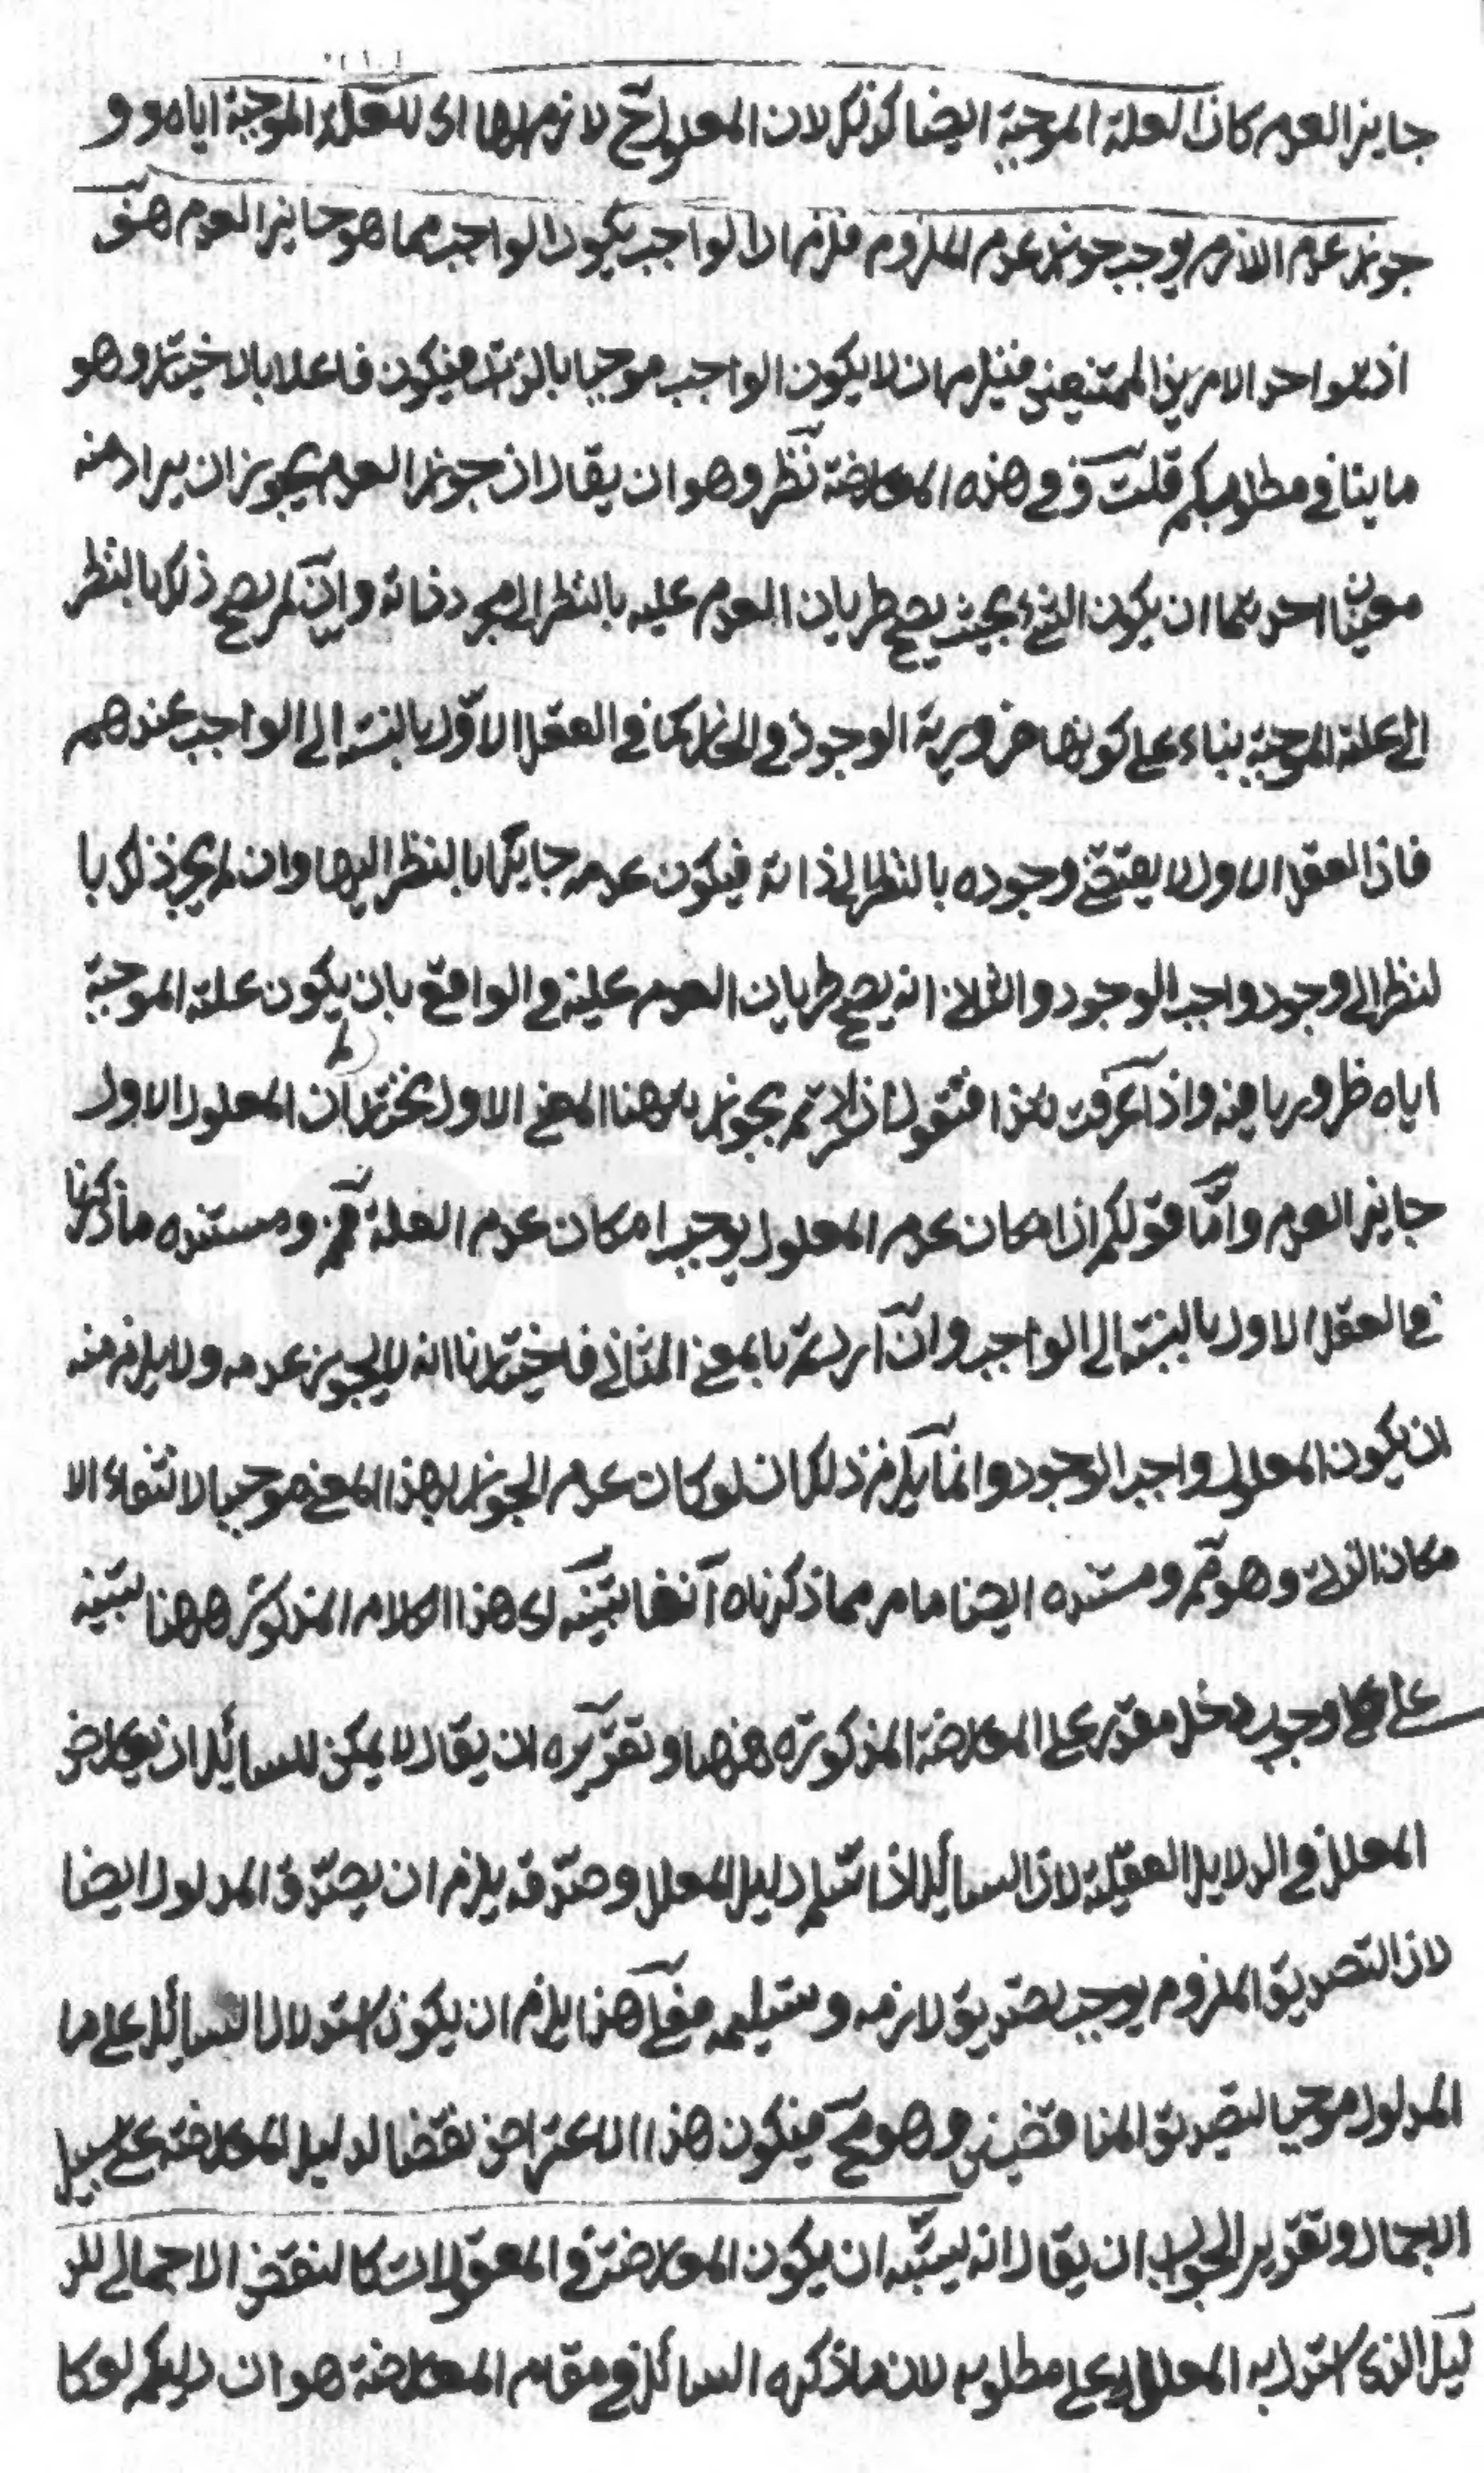 جايز العدم كان العلة الموجبة ايضا كذلك لان المعلول ح لازم لها اى للعلة الموجبة اياه و و
جواز عدم اللازم يوجب جواز عدم الملزوم فلزم ان الواجب يكون الواجب مما هو جايز العدم هف
اذ هو احد الامرين الممتنعين فيلزم ان لا يكون الواجب موجبا بالذات فيكون فاعلا بالاختيار وهو
ما ينافى مطلوبكم قلت وفى هذه المعارضة نظر وهو ان يقال ان جواز العدم يجوز ان يراد منه
معنيان احدهما ان يكون الشئ بحيث يصح طريان العدم عليه بالنظر الى مجرد ذاته وان لم يصح ذلك بالنظر
الى علته الموجبة بناء على كونها ضرورية الوجود فى الخارج كما فى العقل الاول بالنسبة الى الواجب عندهم
فان العقل الاول لا يقتضى وجوده بالنظر الى ذاته فيكون عدمه جايزا بالنظر اليها وان لم يجز ذلك با
لنظر الى وجود واجب الوجود والثانى انه يصح طريان العدم عليه فى الواقع بان يكون علته الموجبة
اياه ظروريا فيه واذا عرفت هذا فنقول ان اردتم بجوازه ههنا المعنى الاول نختار ان المعلول الاول
جايز العدم واما قولكم ان امكان عدم المعلول يوجب امكان عدم العلة فمم ومستنده ما ذكرنا
فى العقل الاول بالنسبة الى الواجب وان اردتم بالمعنى الثانى فاختيارنا انه لا يجوز عدمه ولا يلزم منه
ان يكون المعلول واجب الوجود وانما يلزم ذلك ان لو كان عدم الجواز بهذا المعنى موجبا لانتفاء الا
مكان الذاتى وهو مم ومستنده ايضا ما مر مما ذكرناه آنفا تنبيه اى هذا الكلام المذكور ههنا تنبيه
على جواب دخل مقدر على المعارضة المذكورة ههنا وتقريره ان يقال لا يمكن للسائل ان يعارض
المعلل فى الدلايل العقلية لان السائل اذا سلم دليل المعلل وصدقه يلزم ان يصدق المدلول ايضا
لان التصديق الملزوم يوجب تصديق لازمه وتسليمه فعلى هذا يلزم ان يكون استدلال السائل على ما
المدلول موجبا لتصديق المناقضين وهو مح فيكون هذا الاعتراض نقضا لدليل المعارضة على سبيل
الاجمال وتقرير الجواب ان يقال انه يشبه ان يكون المعارضة فى المعقولات كالنقض الاجمالى للد
ليل الذى استدل به المعلل على مطلوبه لان ما ذكره السائل فى مقام المعارضة هو ان دليلكم لو كا